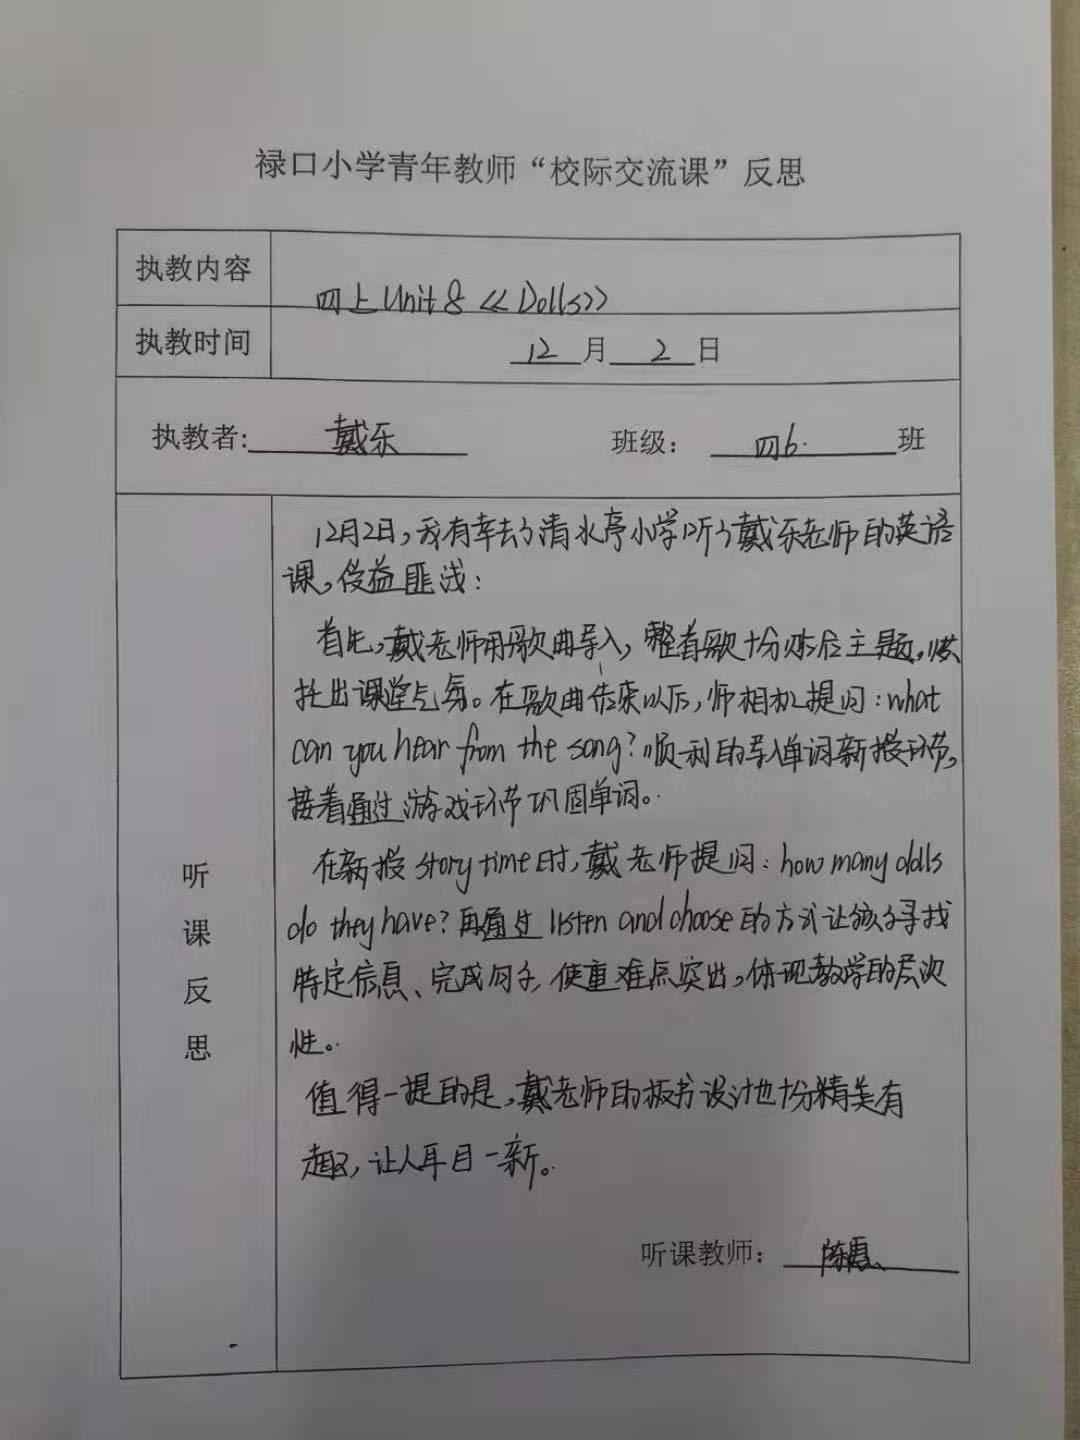 禄口小学青年教师“校际交流课”反思
执教内容
四上Unit 8 《Dolls》
执教时间
12月2日
执教者: 戴乐
班级: 四6. 班
听课反思
12月2日,我有幸去了清水亭小学听了戴乐老师的英语
课,受益匪浅:
首先,戴老师用歌曲导入,整首歌十分贴合主题,烘
托出课堂气氛。在歌曲结束以后,师相机提问:what
can you hear from the song?顺利的导入单词新授环节,
接着通过游戏环节巩固单词。
在新授story time时,戴老师提问:how many dolls
do they have?再通过listen and choose的方式让孩子寻找
特定信息、完成句子,使重难点突出,体现教学的层次
性。
值得一提的是,戴老师的板书设计也十分精美有
趣,让人耳目一新。
听课教师: 陈